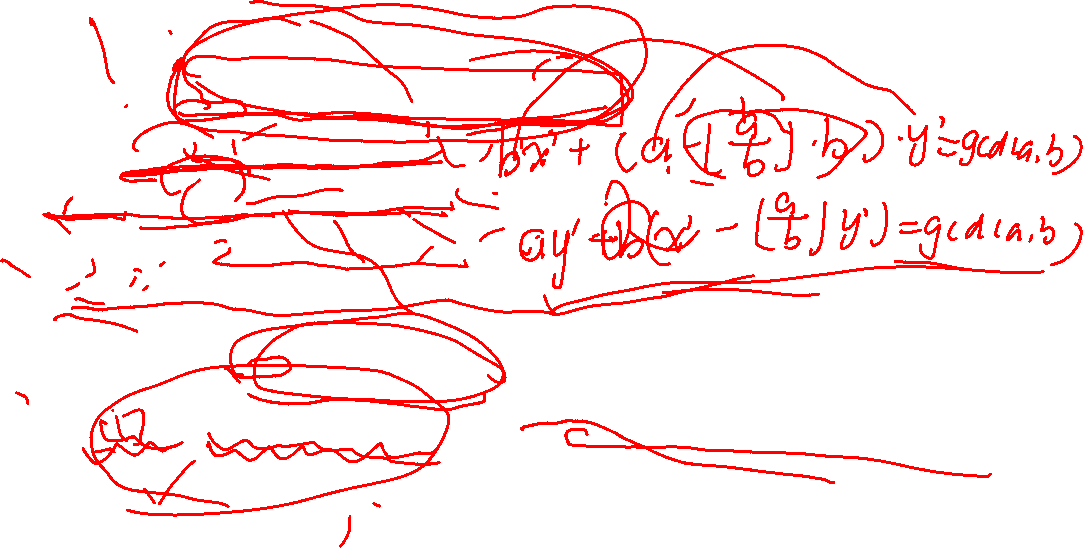 bx' + (a - [a/b] · b) · y' = gcd(a, b)
ay' + b(x' - [a/b] y') = gcd(a, b)